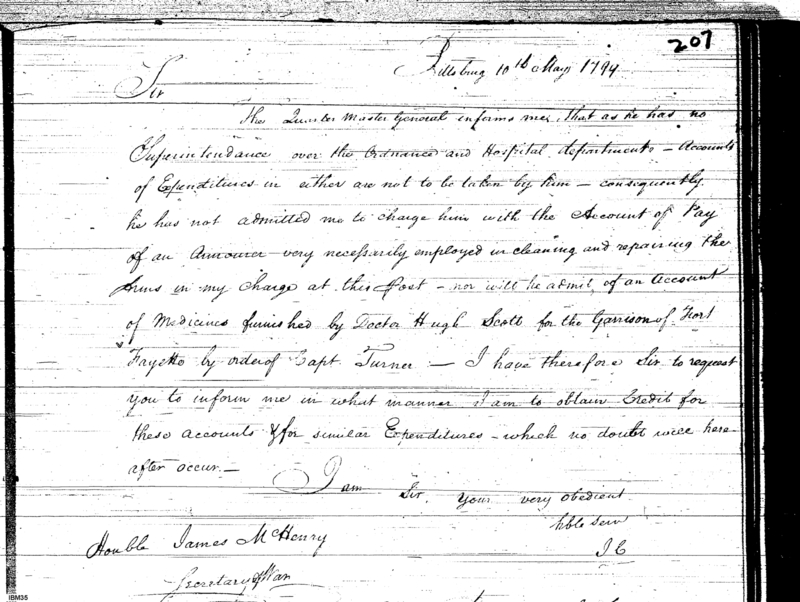 207
Pittsburg 10th May 1794
Sir
the Quarter Master General informs me, that as he has no
Superintendance over the Ordnance and Hospital departments - Accounts
of Expenditures in either are not to be taken by him - consequently
he has not admitted me to charge him with the Account of Pay
of an Armourer very necessarily employed in cleaning and repairing the
Arms in my charge at this Post - nor will he admit of an Account
of Medicines furnished by Doctor Hugh Scott for the Garrison of Fort
Fayette by order of Capt. Turner - I have therefore Sir to request
you to inform me in what manner I am to obtain Credit for
these accounts & for similar Expenditures - which no doubt will here
after occur. -
I am Sir, your very obedient
hble Serv
I C
Honble James McHenry
Secretary of War
IBM35